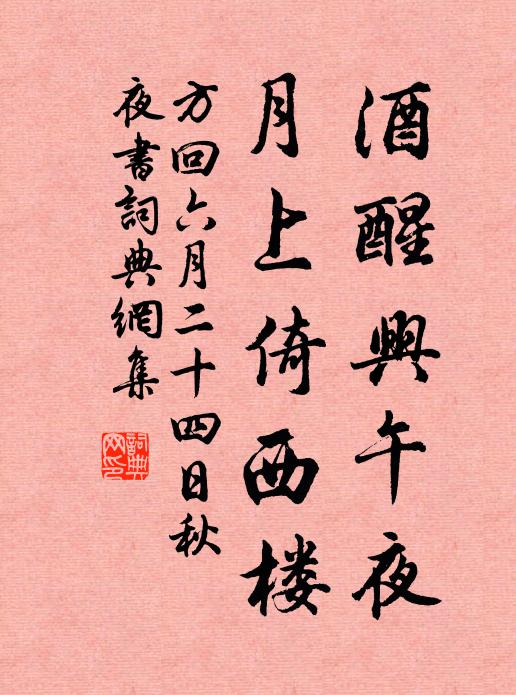 酒醒興午夜
月上倚西楼
方回六月二十四日秋
夜書詞典網集
詞典网印